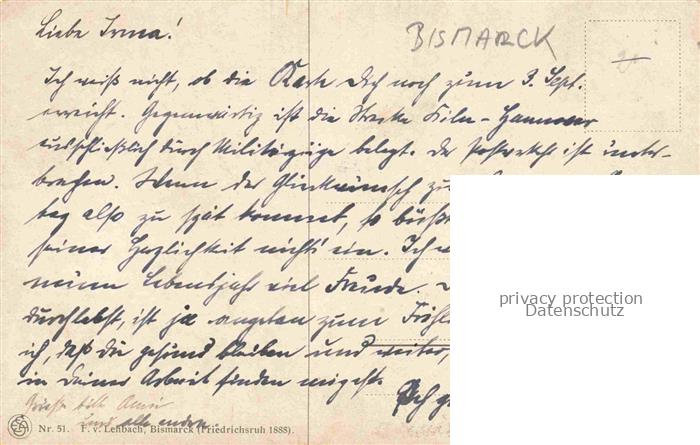 Liebe Irma!
BISMARCK
Ich weiß nicht, ob die Karte Dich noch zum 3. Sept.
erreicht. Gegenwärtig ist die Strecke Köln-Hannover
ausschließlich durch Militärzüge belegt. Der Postverkehr ist unter-
brochen. Wenn der Glückwunsch zu
tag also zu spät kommt, so büßt
seiner Herzlichkeit nichts ein. Ich
neuen Lebensjahr viel Freude.
durchlebst, ist ja angetan zum
ich, daß Du gesund bleiben und weiter,
in Deiner Arbeit finden mögest.
Grüße bitte
und alle andern.
privacy protection
Datenschutz
Nr. 51. F. v. Lenbach, Bismarck (Friedrichsruh 1888).